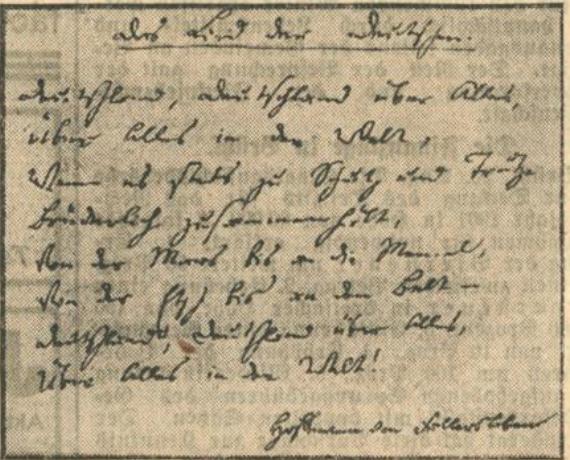 Das Lied der Deutschen.
Deutschland, Deutschland über Alles,
über Alles in der Welt,
Wenn es stets zu Schutz und Trutze
brüderlich zusammenhält,
Von der Maas bis an die Memel,
Von der Etsch bis an den Belt –
Deutschland, Deutschland über Alles,
Über Alles in der Welt!
Hoffmann von Fallersleben